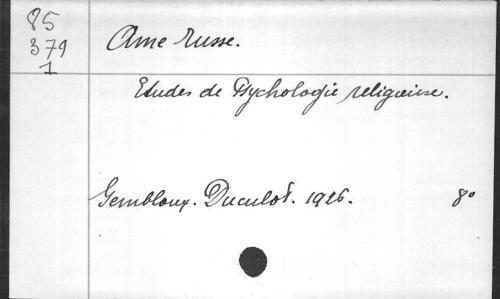 85
379
1
Ame russe.
Etudes de Psychologie religieuse.
Gembloux. Duculot. 1926. 8°